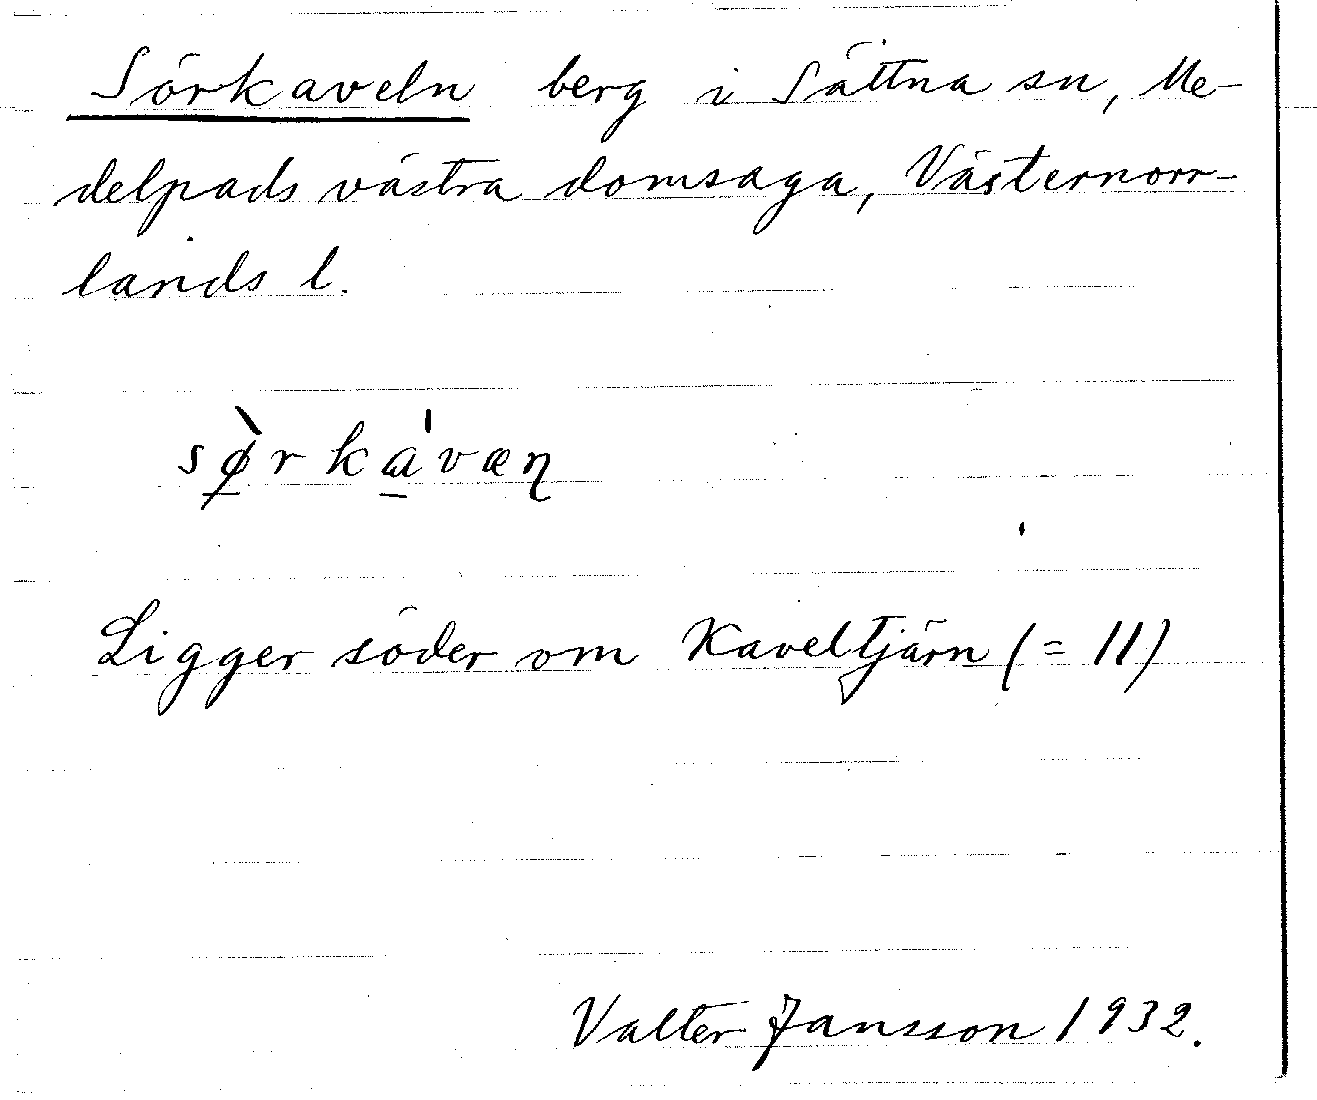 Sörkaveln berg i Sättna sn, Me-
delpads västra domsaga, Västernorr-
lands l.
sø̲̀rka̲̍væn̥
Ligger söder om Kaveltjärn (= 11)
Valter Jansson 1932.